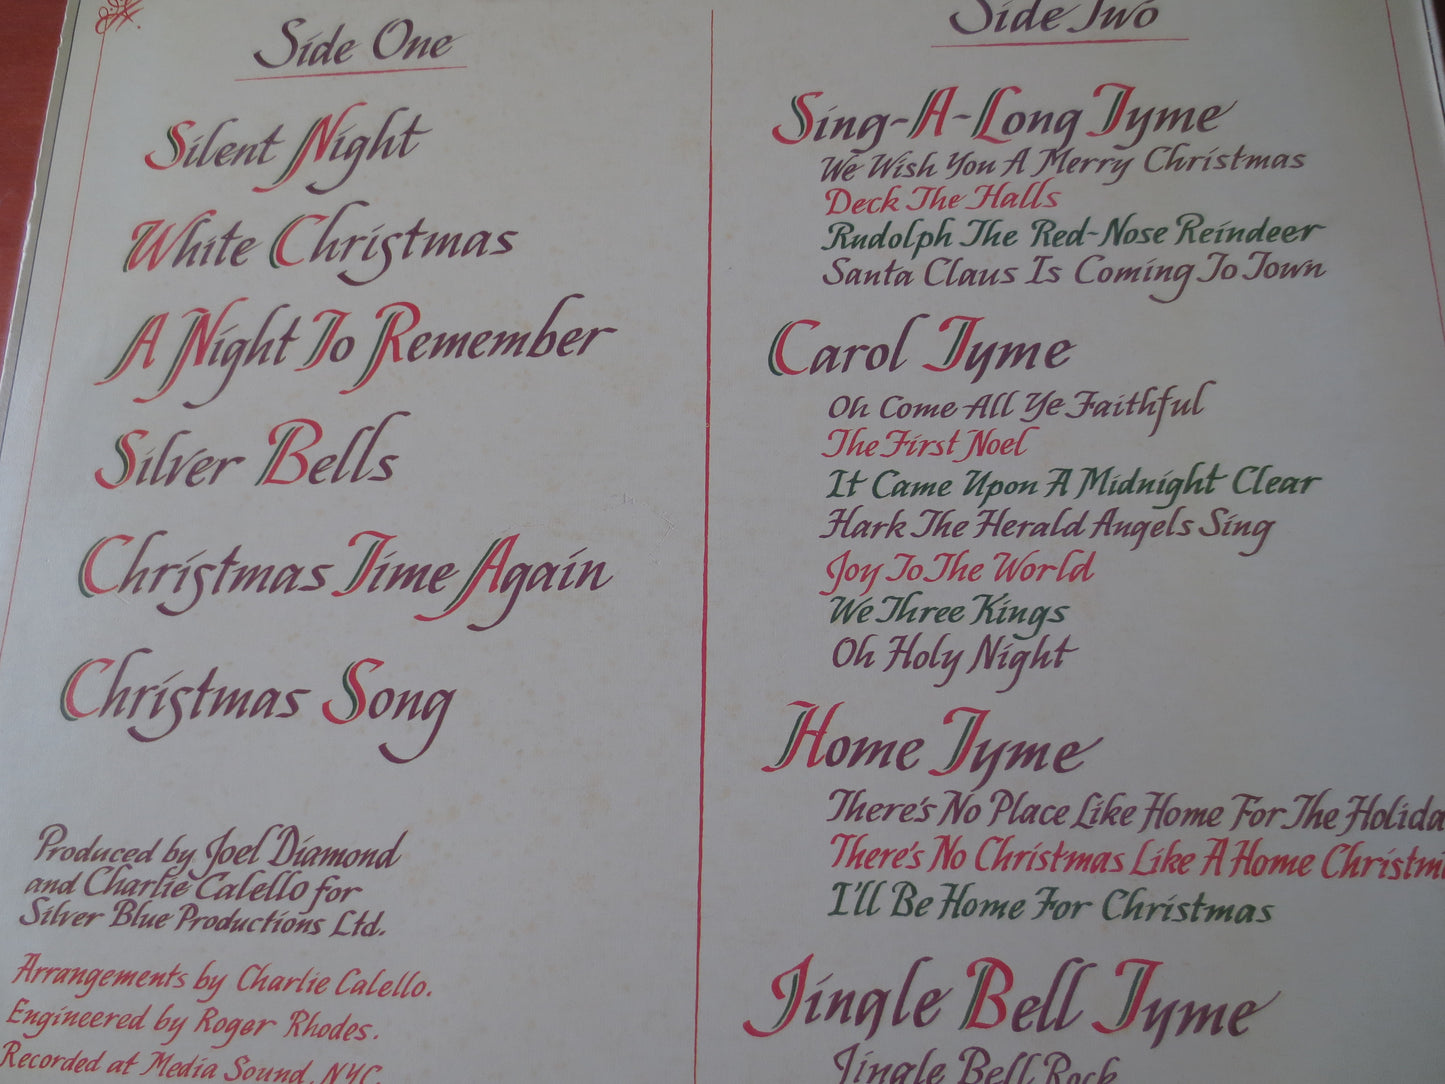 Side One
Silent Night
White Christmas
A Night To Remember
Silver Bells
Christmas Time Again
Christmas Song
Produced by Joel Diamond
and Charlie Calello for
Silver Blue Productions Ltd.
Arrangements by Charlie Calello.
Engineered by Roger Rhodes.
Recorded at Media Sound, NYC.
Side Two
Sing-A-Long Tyme
We Wish You A Merry Christmas
Deck The Halls
Rudolph The Red-Nose Reindeer
Santa Claus Is Coming To Town
Carol Tyme
Oh Come All Ye Faithful
The First Noel
It Came Upon A Midnight Clear
Hark The Herald Angels Sing
Joy To The World
We Three Kings
Oh Holy Night
Home Tyme
There's No Place Like Home For The Holida
There's No Christmas Like A Home Christm
I'll Be Home For Christmas
Jingle Bell Tyme
Jingle Bell Rock